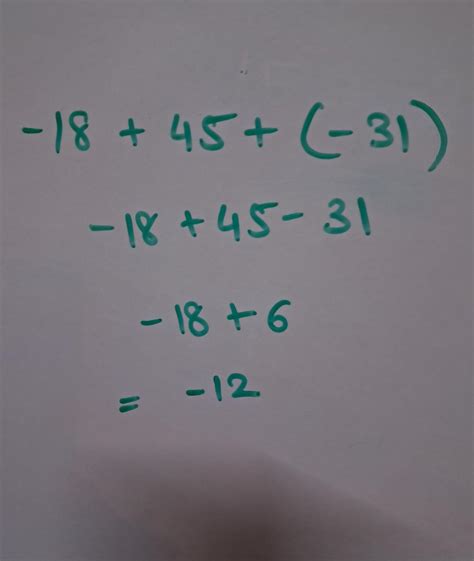 -18 + 45 + (-31)
-18 + 45 - 31
-18 + 6
= -12